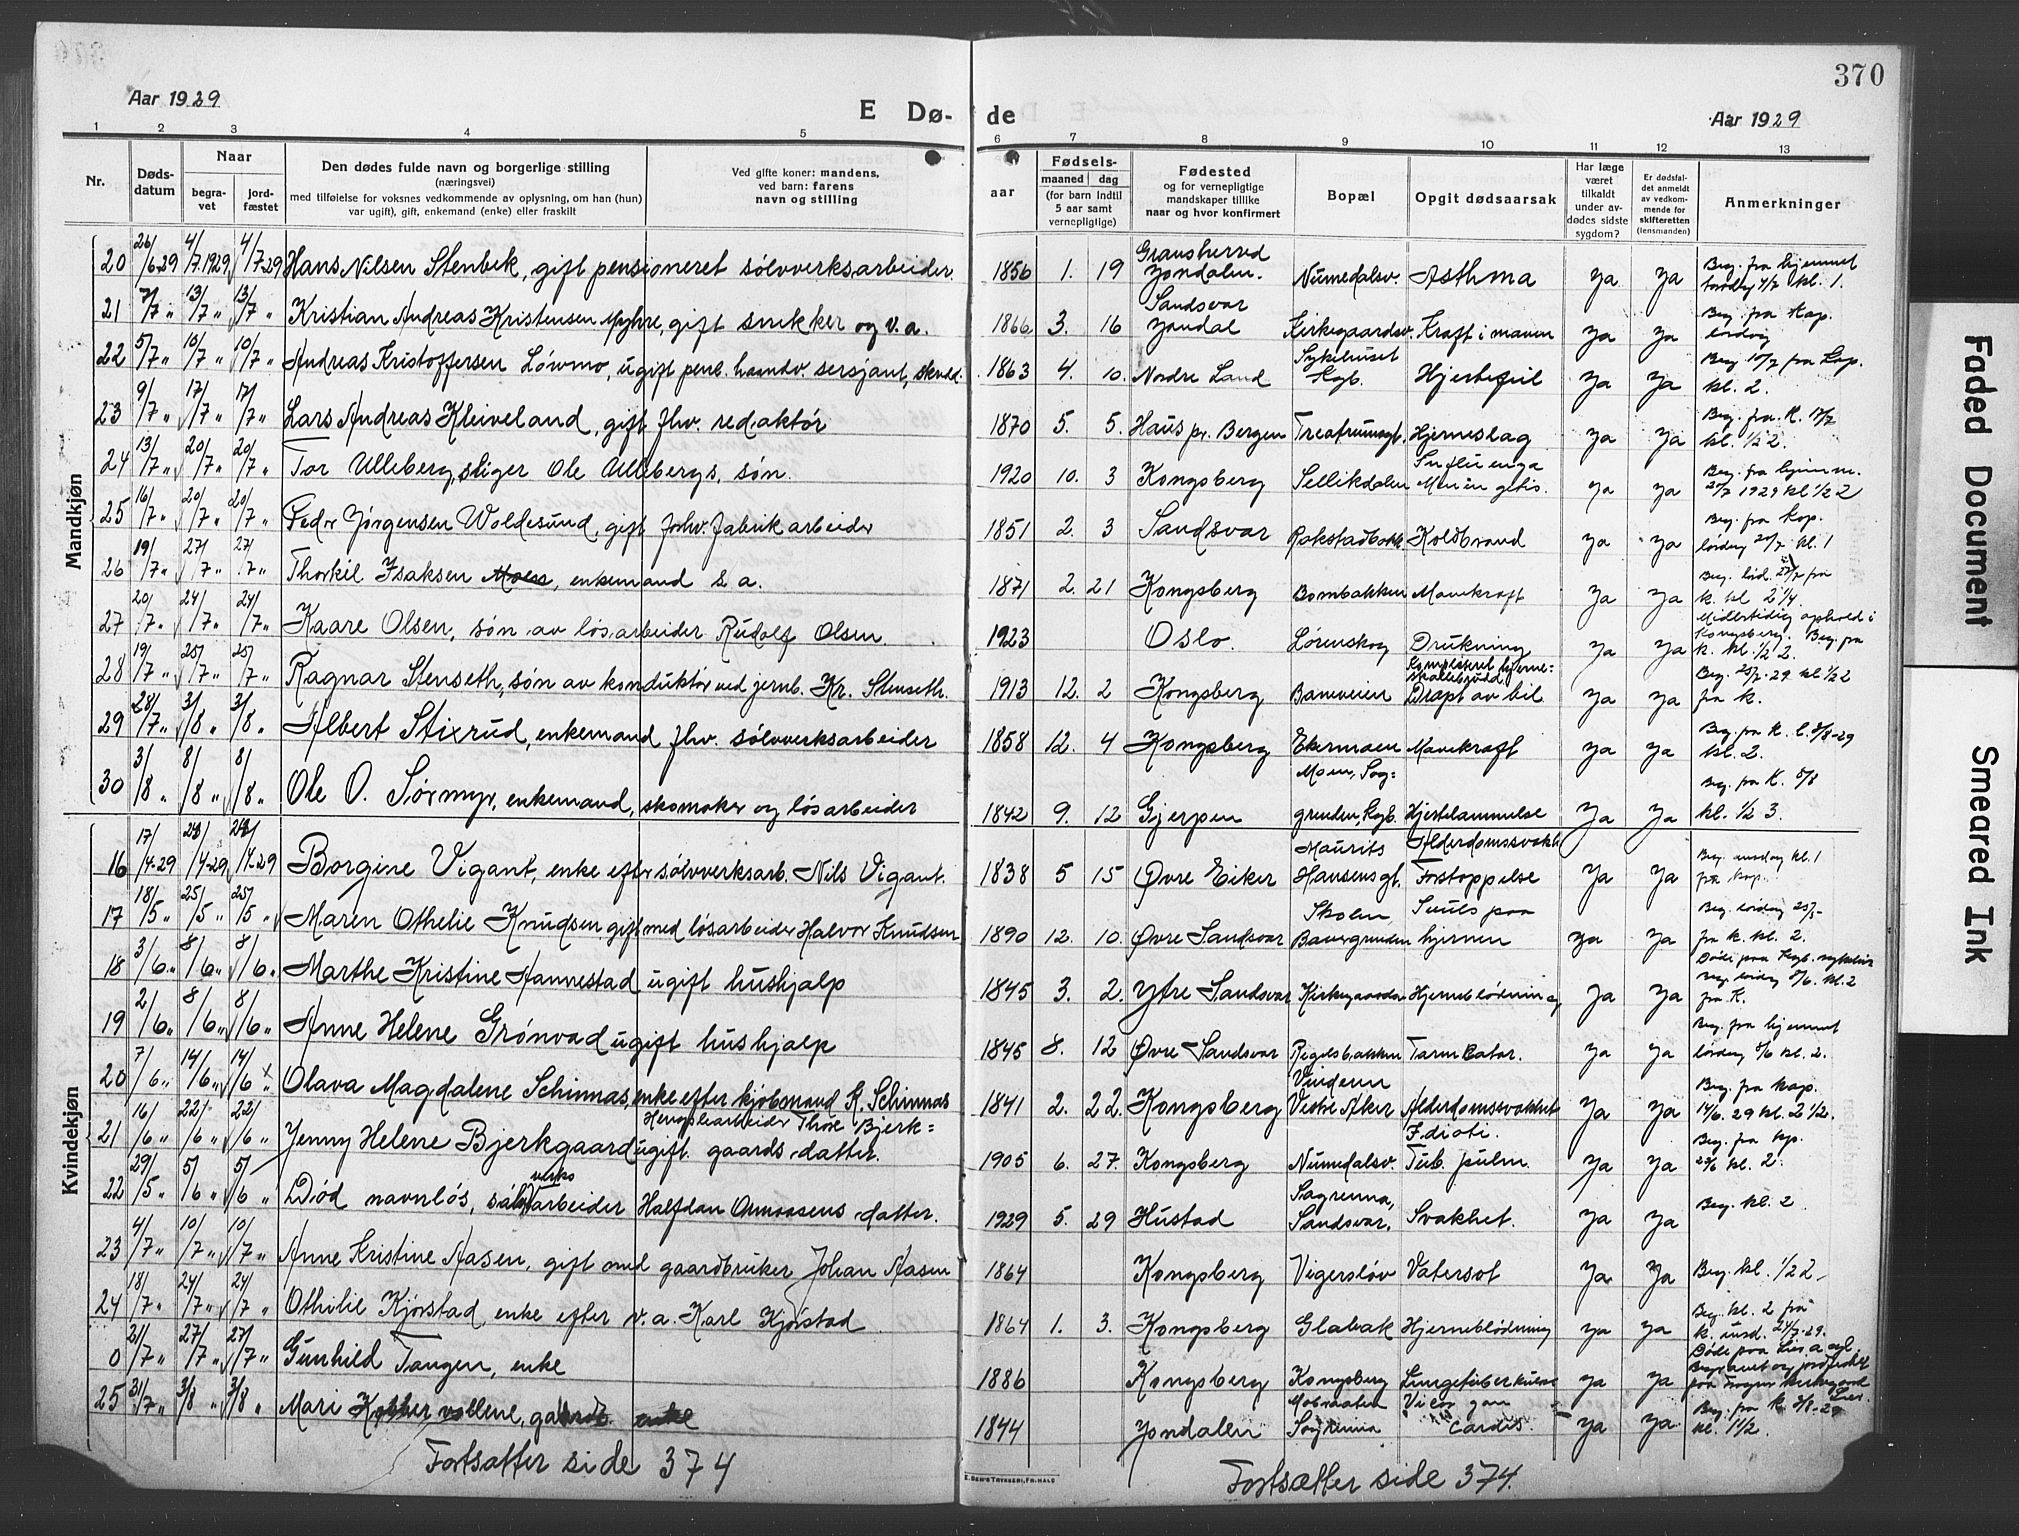 370
Aar 1929
Aar 1929
E Dø-
de
1 2 3 4 5
6 7 8 9 10 11 12 13
Nr.
Døds-
datum
Naar
begra-
vet
jord-
fæstet
Den dødes fulde navn og borgerlige stilling
(næringsvei)
med tilføielse for voksnes vedkommende av oplysning, om han (hun)
var ugift), gift, enkemand (enke) eller fraskilt
Ved gifte koner: mandens,
ved barn: farens
navn og stilling
aar
Fødsels-
maaned dag
(for barn indtil
5 aar samt
vernepligtige)
Fødested
og for vernepligtige
mandskaper tillike
naar og hvor konfirmert
Bopæl
Opgit dødsaarsak
Har læge
været
tilkaldt
under av-
dødes sidste
sygdom?
Er dødsfal-
det anmeldt
av vedkom-
mende for
skifteretten
(lensmanden)
Anmerkninger
Mandkjøn
20 26/6 29 4/7 1929 4/7 29 Hans Nilsen Stenbek, gift pensioneret sølvverksarbeider. 1856 1. 19 Gransherred Jondalen. Numedalsv. Asthma Ja Ja Beg. fra hjemmet torsdag 4/7 kl. 1.
21 7/7 " 13/7 " 13/7 " Kristian Andreas Kristensen Myhre, gift snikker og v. a. 1866 3. 16 Sandsvar Jondal Kirkegaardsv. Kræft i maven Ja Ja Beg. fra Kap. lørdag
22 5/7 " 10/7 " 10/7 " Andreas Kristoffersen Løvmo, ugift pens. haandv. sersjant, 1863 4. 10. Nordre Land Sykehuset Kgb. Hjertefeil Ja Ja Beg. 10/7 fra Kap. kl. 2.
23 9/7 " 17/7 " 17/7 " Lars Andreas Kleiveland, gift fhv. redaktør 1870 5. 5. Haus pr. Bergen Hjerneslag Ja Ja Beg. fra K. 17/7 kl. 1/2 2.
24 13/7 " 20/7 " 20/7 " Tor Ulleberg, stiger Ole Ullebergs, søn. 1920 10. 3 Kongsberg Sellikdalen Influenga Meningitis. Ja Ja Beg. fra hjemme. 20/7 1929 kl 1/2 2
25 16/7 " 20/7 " 20/7 " Peder Jørgensen Woldesund, gift forhv. fabrikarbeider 1851 2. 3 Sandsvar Koldbrand Ja Ja Beg. fra Kap. lørdag 20/7 kl. 1
26 19/7 " 27/7 " 27/7 " Thorkil Isaksen Moen, enkemand s. a. 1871 2. 21 Kongsberg Bombakken Mavekræft Ja Ja Beg. lørd. 27/7 fra k. kl 2 1/4.
27 20/7 " 24/7 " 24/7 " Kaare Olsen, søn av løsarbeider Rudolf Olsen. 1923 Oslo. Lørenskog Drukning Ja Ja Midlertidig ophold i Kongsberg. Beg. fra k. kl. 1/2 2.
28 19/7 " 25/7 " 25/7 " Ragnar Stenseth, søn av konduktør ved jernb. Kr. Stenseth. 1913 12. 2 Kongsberg Baneveien Drept av bil Ja Ja Beg. 25/7. 29 kl 1/2 2 fra k.
29 28/7 " 3/8 " 3/8 " Albert Stixrud, enkemand fhv. sølvverksarbeider 1858 12. 4 Kongsberg Mavekræft Ja Ja Beg. fra K. l. 3/8-29 kl. 2.
30 3/8 " 8/8 " 8/8 " Ole O. Sørmyr, enkemand, skomaker og løsarbeider 1842 9. 12 Gjerpen Moen, Sag= grenden, Kgb. Hjertelammelse Ja Ja Beg. fra K. 8/8 kl. 1/2 3.
Kvindekjøn
16 17/4-29 24/4-29 24/4-29 Borgine Vigant, enke efter sølvverksarb. Nils Vigant. 1838 5 15 Øvre Eiker Maurits Hansensgt. Alderdomssvakh. Forstoppelse Ja Ja Beg. onsdag kl. 1 fra kap.
17 18/5 " 25/5 " 25/5 " Maren Othelie Knudsen, gift med løsarbeider Halvor Knudsen 1890 12. 10. Øvre Sandsvar Skolen, Svuls paa hjernen Ja Ja Beg. lørdag 25/5- fra k. kl. 2.
18 3/6 " 8/6 " 8/6 " Marthe Kristine Hannestad ugift hushjælp 1845 3. 2. Ytre Sandsvar Kirkegaardsv Hjerneblødning Ja Ja Døde paa Kgb. sykehus Beg. lørdag 8/6. kl. 2 fra K.
19 2/6 " 8/6 " 8/6 " Anne Helene Grønvad ugift hushjælp 1845 8. 12 Øvre Sandsvar Tarmcatar. Ja Ja Beg. fra hjemmet lørdag 8/6 kl. 2.
20 7/6 " 14/6 " 14/6 " Olava Magdalene Schinnas, enke efter kjøbmand K. Schinnas 1841 2. 22. Kongsberg Vinderen Vestre Aker Alderdomssvakhet Ja Ja Beg. fra kap. 14/6. 29 kl. 2 1/2.
21 16/6 " 22/6 " 22/6 " Jenny Helene Bjerkgaard ugift Thore Bjerk= gaards datter. 1905 6. 27. Kongsberg Numedalsv. Idioti. Tub. pulm. Ja Ja Beg. fra kp. kl. 2.
22 29/5 " 5/6 " 5/6 " Død navnløs, sølvverksarbeider Halfdan datter. 1929 5. 29 Hustad Sagrenna, Sandsvar. Svakhet. Ja Ja Beg. kl. 2
23 4/7 " 10/7 " 10/7 " Anne Kristine Aasen, gift med gaardbruker Johan Aasen 1864 Kongsberg Vigersløv Vatersot Ja Ja Beg. kl. 1/2 2
24 18/7 " 24/7 " 24/7 " Othilie Kjørstad enke efter v. a. Karl Kjørstad 1864 1. 3. Kongsberg Glabak Hjerneblødning Ja Ja Beg. kl. 2 fra k. onsd. 24/7-29.
0 21/7 " 27/7 " 27/7 " Gunhild Tangen, enke 1886 Kongsberg Kongsberg Lungetuberkulose Ja Ja Døde paa Lier Begravet og jordfæstet paa Frogner kirkegaard Lier.
25 31/7 " 3/8 " 3/8 " Mari enke 1844 Jondalen Ja Ja Beg. fra k 3/8-29 kl. 1 1/2.
Fortsætter side 374
Fortsætter side 374.
E. SEM'S TRYKKERI, FR. HALD
Faded Document
Smeared Ink